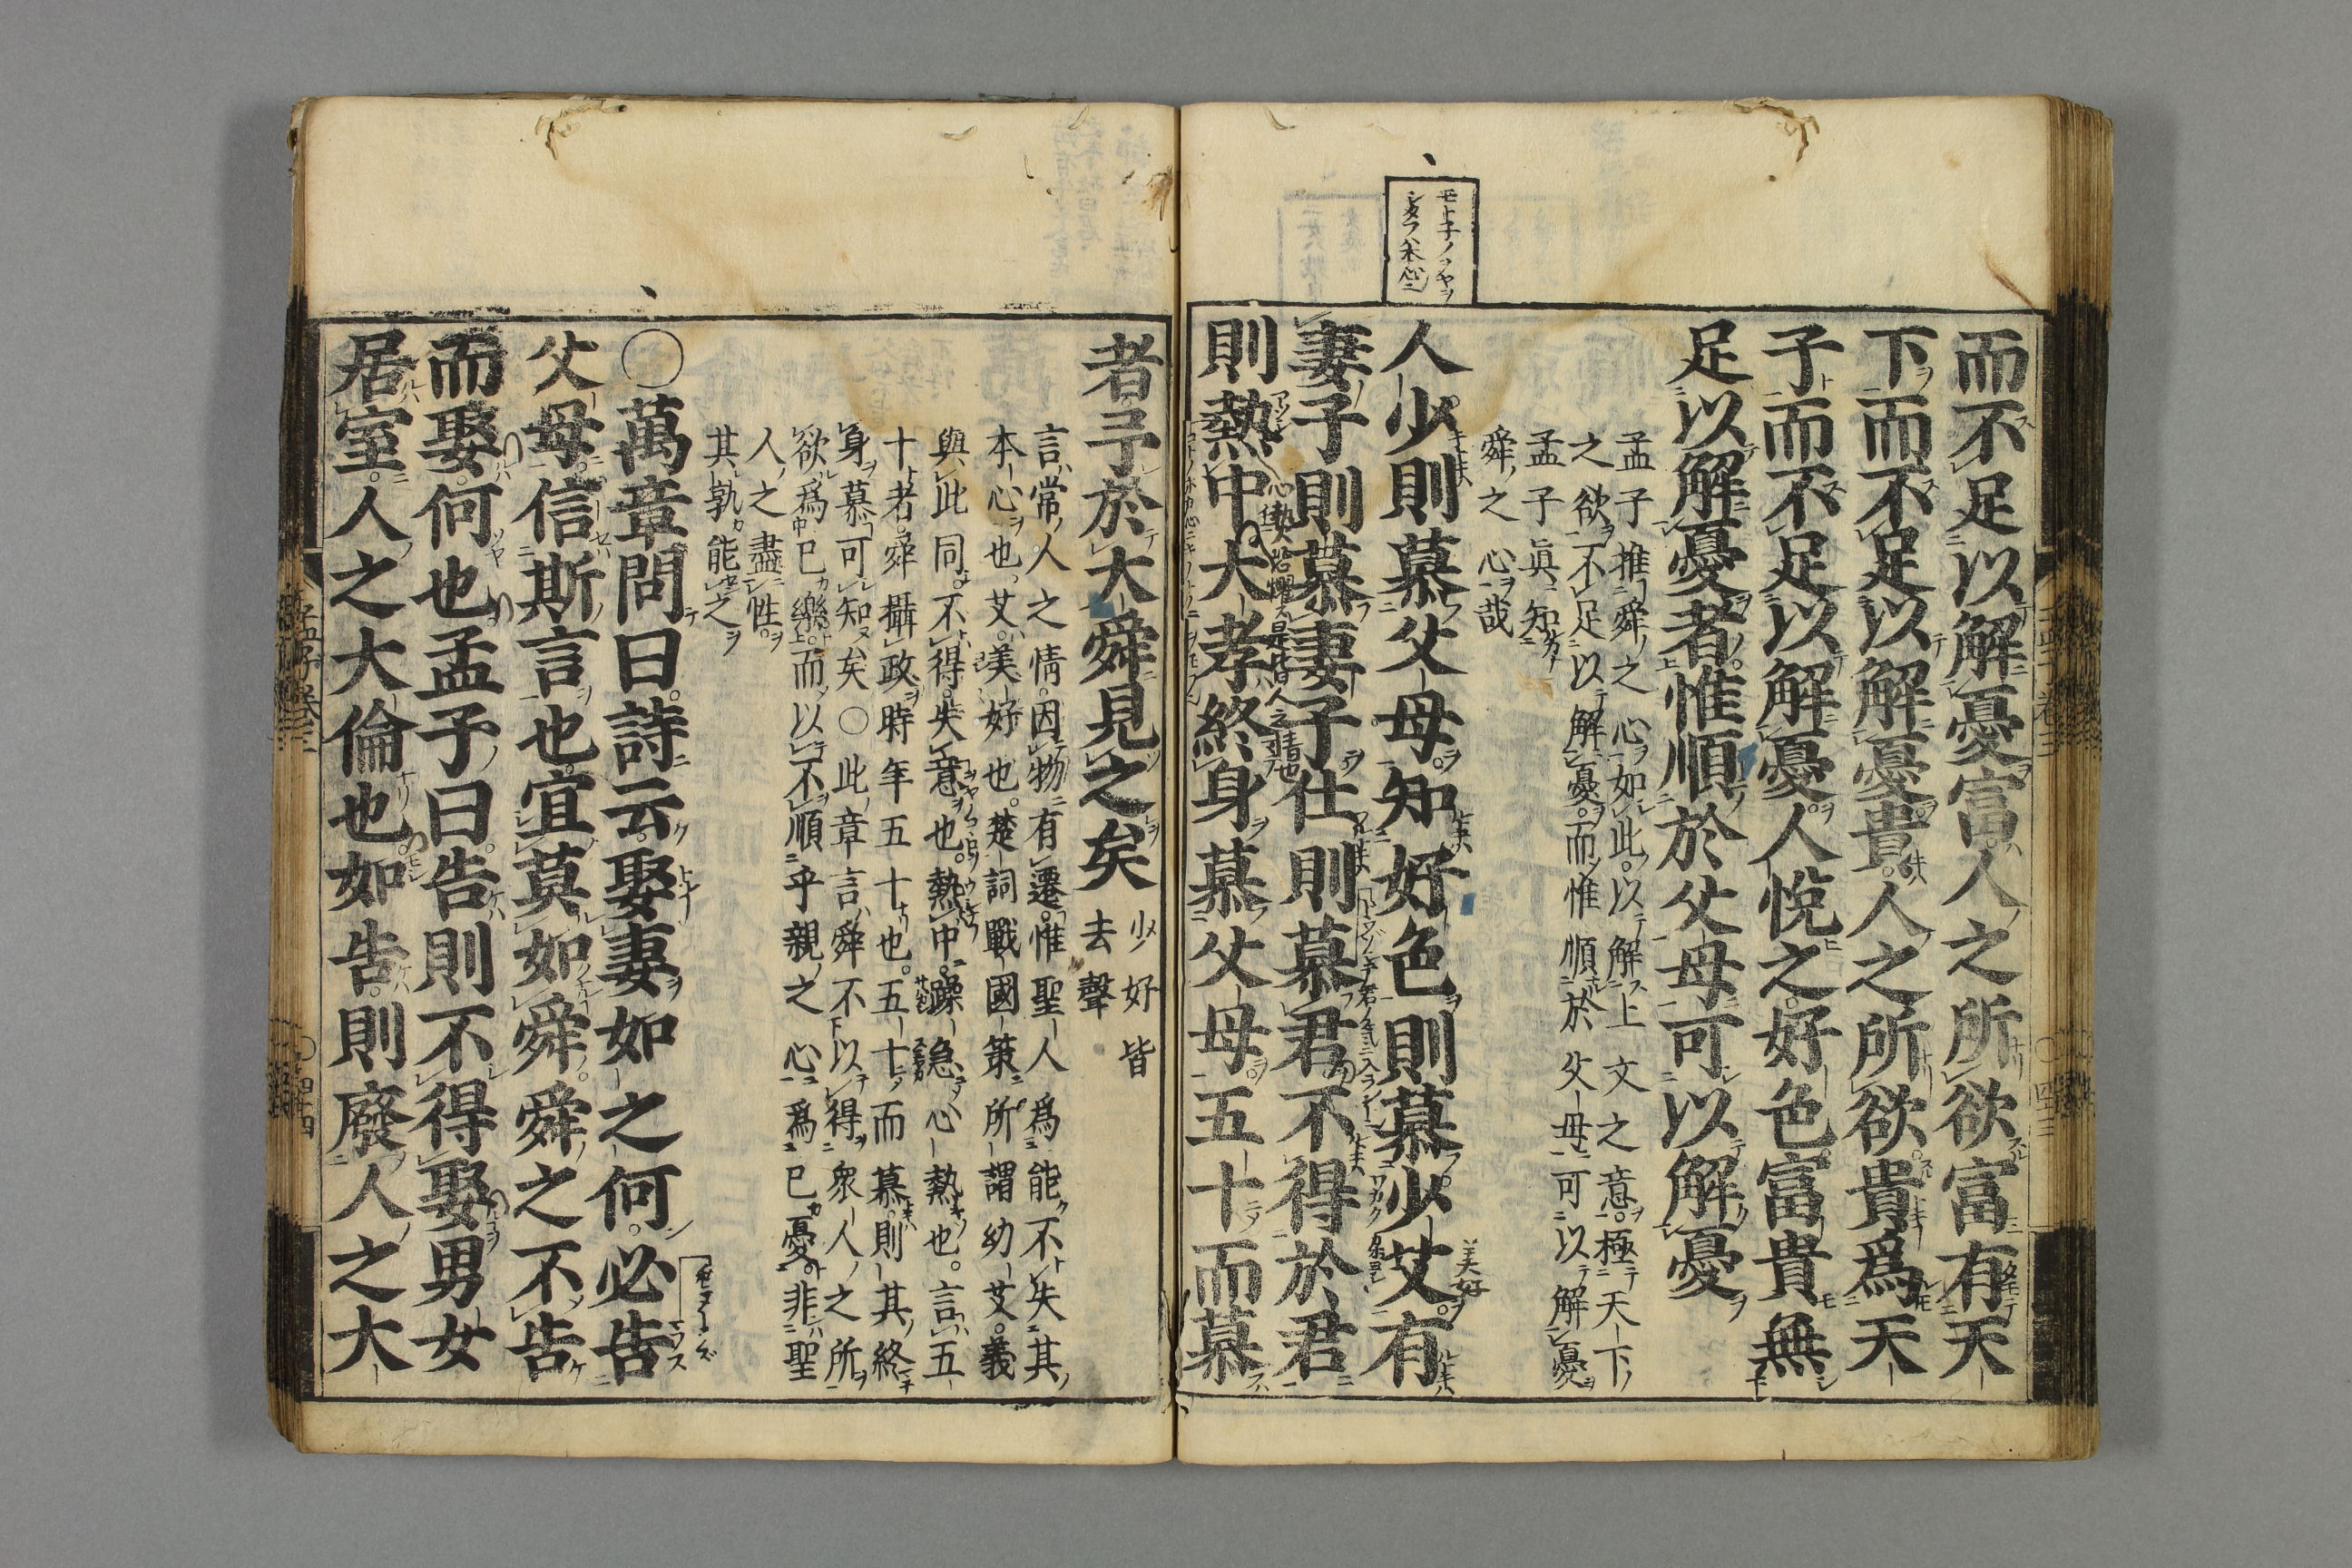 而不足以解憂富人之所欲富有天
下而不足以解憂貴人之所欲貴爲天
子而不足以解憂人悅之好色富貴無
足以解憂者惟順於父母可以解憂
孟子推舜之心如此以解上文之意極天下
之欲不足以解憂而惟順於父母可以解憂
孟子眞知
舜之心哉
人少則慕父母知好色則慕少艾有
妻子則慕妻子仕則慕君不得於君
則熱中大孝終身慕父母五十而慕
者予於大舜見之矣
少好皆
去聲
言常人之情因物有遷惟聖人爲能不失其
本心也艾美好也楚詞戰國策所謂幼艾義
與此同不得失意也熱中躁急心熱也言五
十者舜攝政時年五十也五十而慕則其終
身慕可知矣○此章言舜不以得衆人之所
欲爲已樂而以不順乎親之心爲已憂非聖
人之盡性
其孰能之
○萬章問曰詩云娶妻如之何必告
父母信斯言也宜莫如舜舜之不告
而娶何也孟子曰告則不得娶男女
居室人之大倫也如告則廢人之大
孟子卷三
四十四